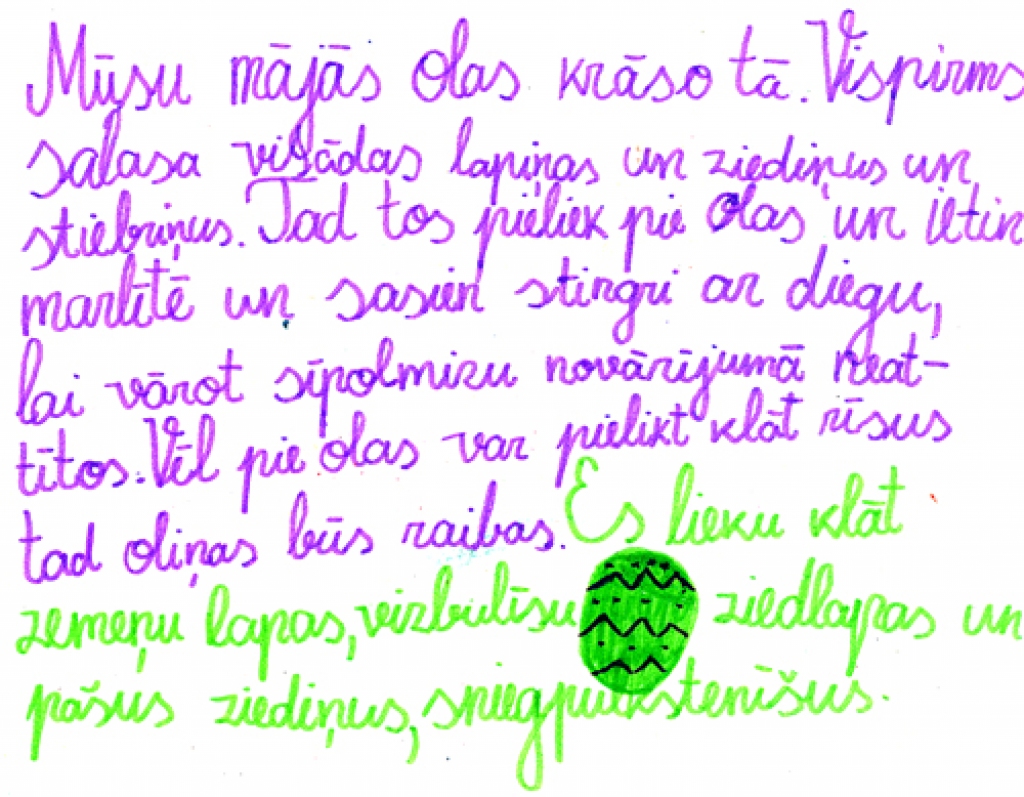 Mūsu mājās olas krāso tā. Vispirms
salasa visādas lapiņas un ziediņus un
stiebriņus. Tad tos pieliek pie olas un ietin
marlītē un sasien stingri ar diegu,
lai vārot sīpolmizu novārījumā neat-
tītos. Vēl pie olas var pielikt klāt rīsus
tad oliņas būs raibas. Es lieku klāt
zemeņu lapas, veizbulīšu ziedlapas un
pašus ziediņus, sniegpulkstenīšus.